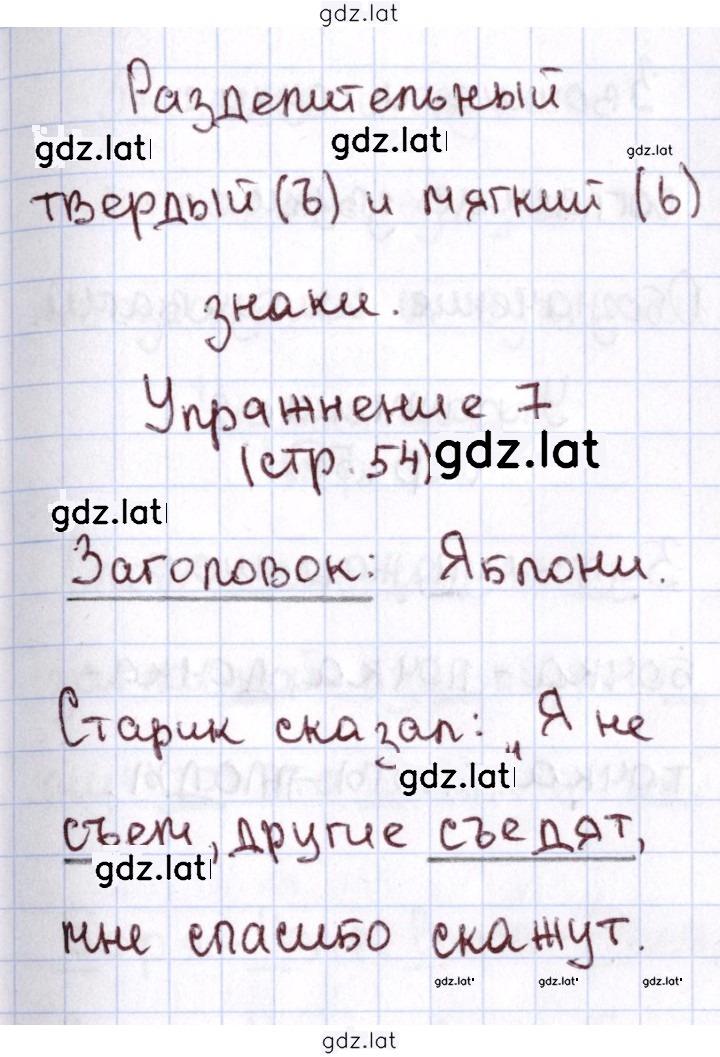 gdz.lat
Разделительный
gdz.lat gdz.lat gdz.lat
твердый (ъ) и мягкий (ь)
знаки.
Упражнение 7
(стр. 54) gdz.lat
gdz.lat
Заголовок: Яблони.
Старик сказал: „Я не
gdz.lat
съем, другие съедят,
gdz.lat
мне спасибо скажут.
gdz.lat gdz.lat gdz.lat
gdz.lat